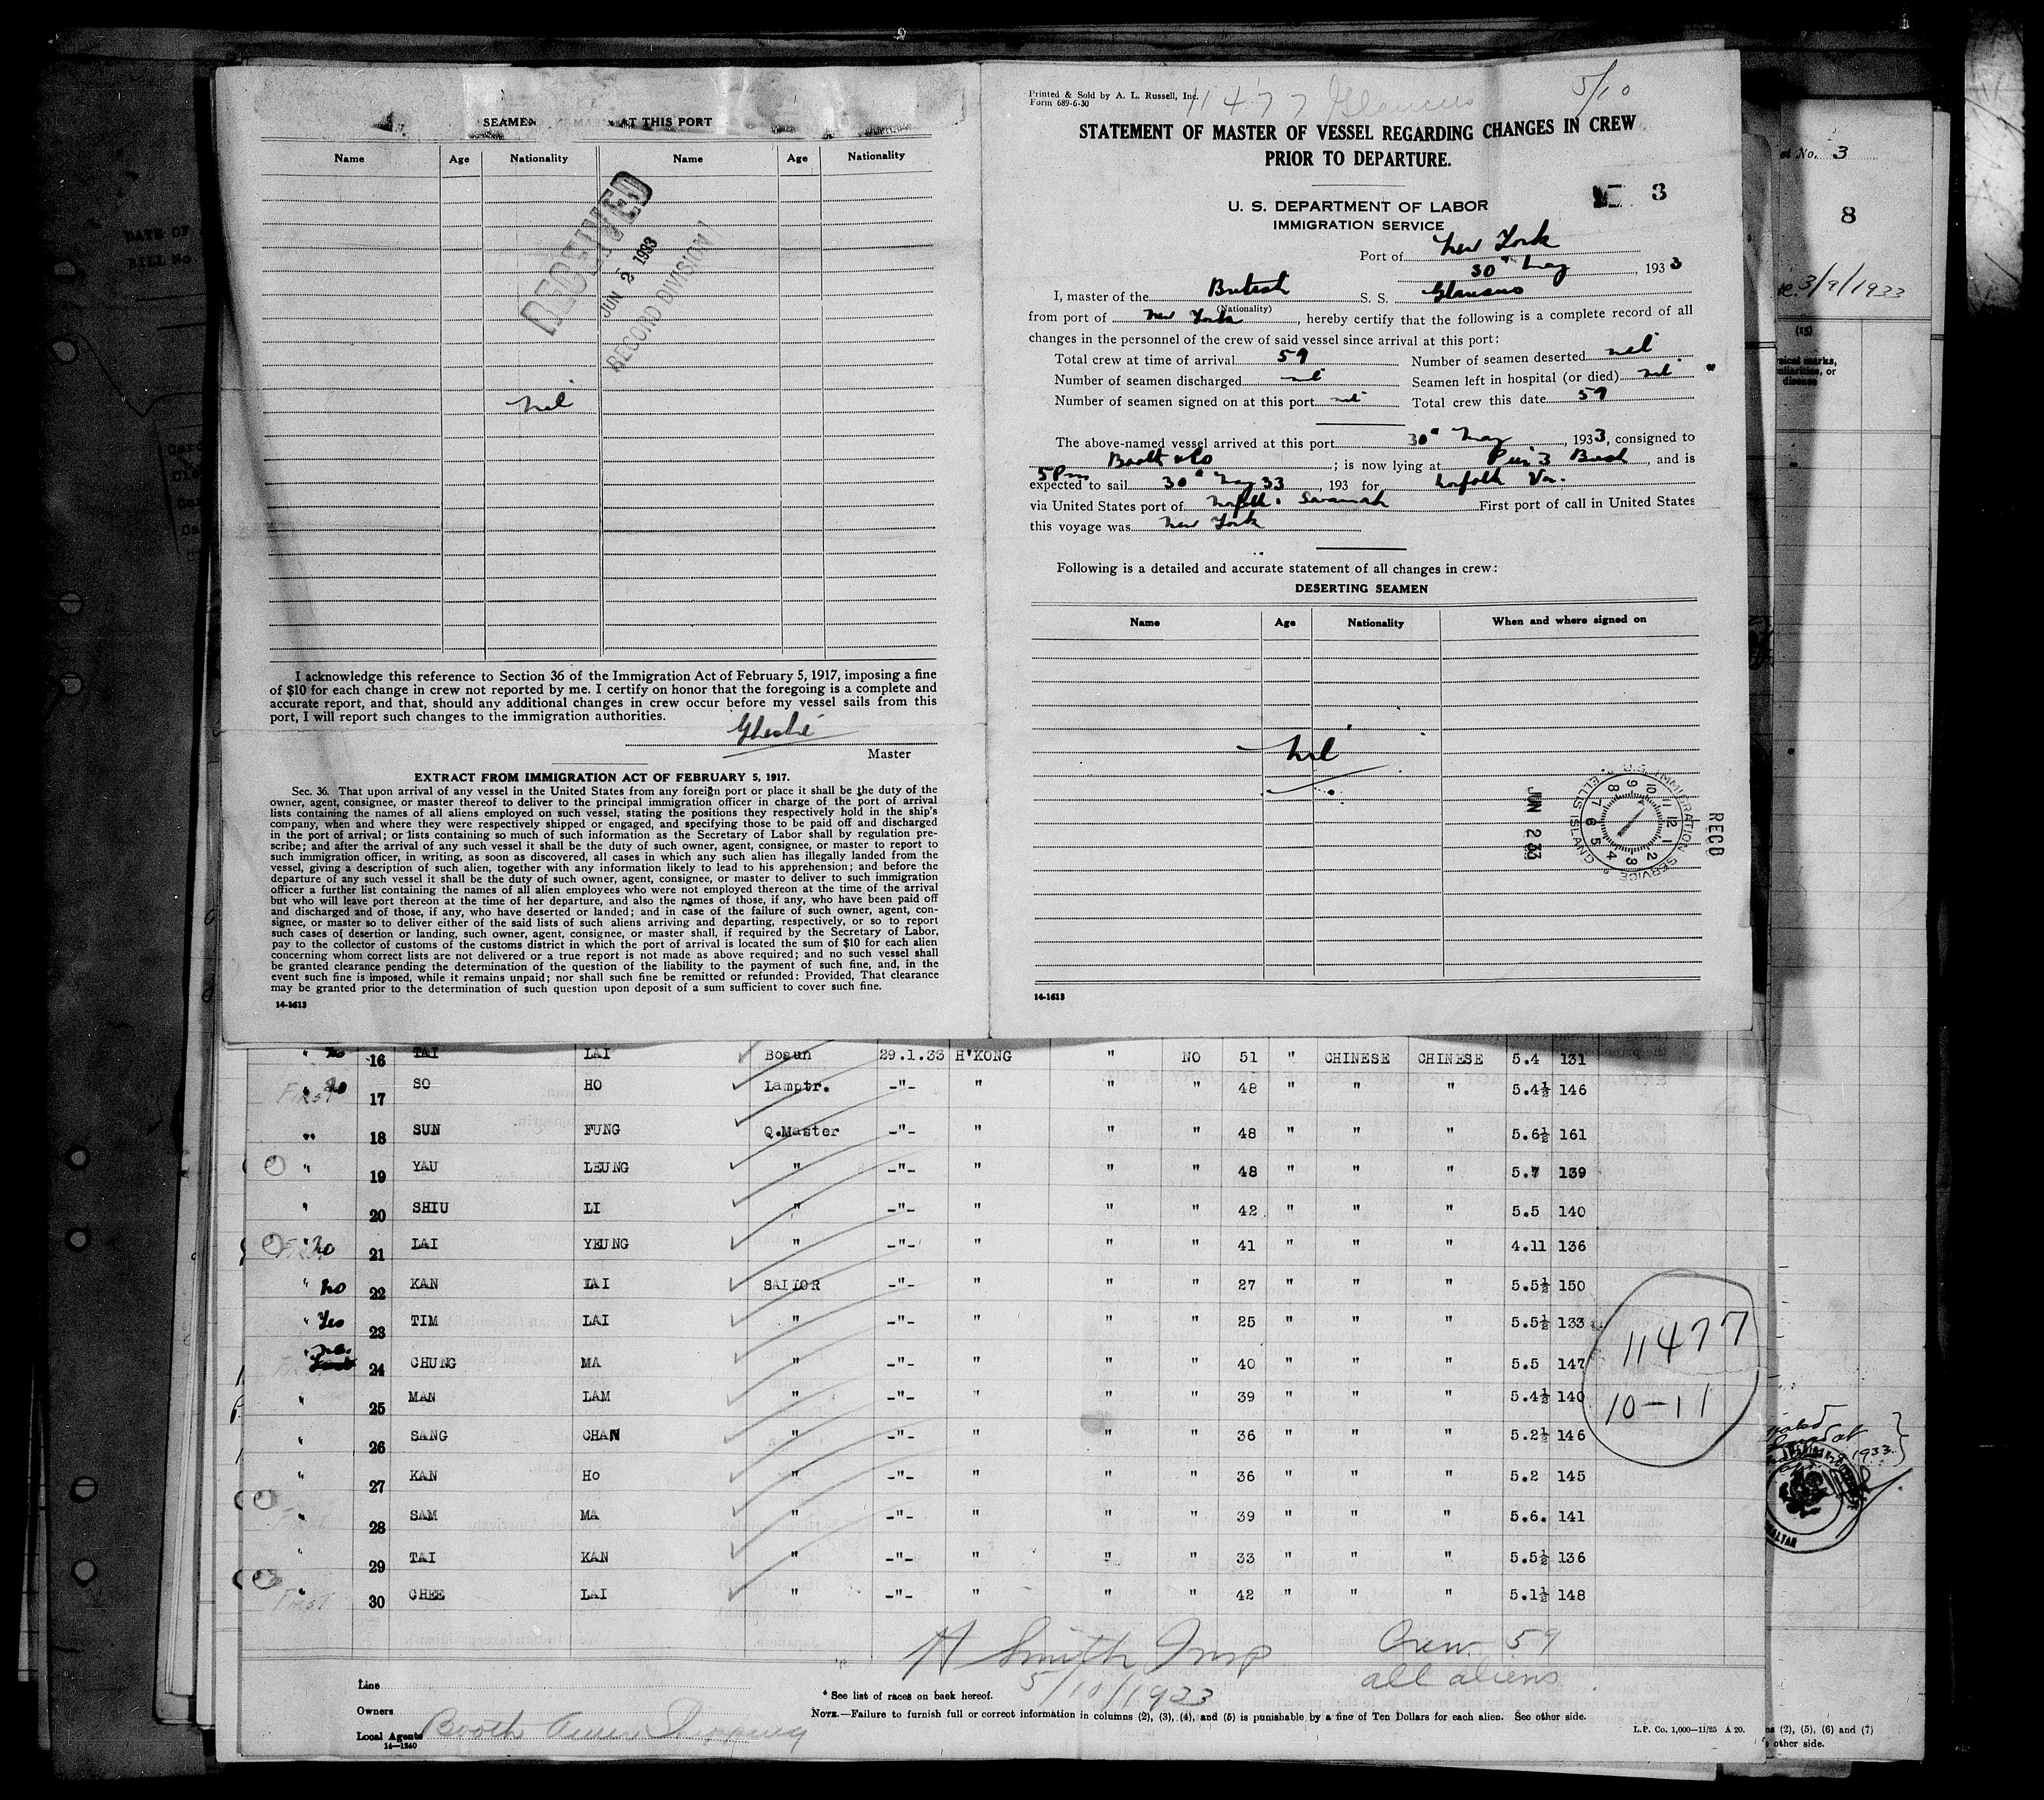 SEAMEN AT THIS PORT
Name Age Nationality Name Age Nationality
RECEIVED
JUN 2 1933
RECORD DIVISION
nil
I acknowledge this reference to Section 36 of the Immigration Act of February 5, 1917, imposing a fine
of $10 for each change in crew not reported by me. I certify on honor that the foregoing is a complete and
accurate report, and that, should any additional changes in crew occur before my vessel sails from this
port, I will report such changes to the immigration authorities.
Master
EXTRACT FROM IMMIGRATION ACT OF FEBRUARY 5, 1917.
Sec. 36. That upon arrival of any vessel in the United States from any foreign port or place it shall be the duty of the
owner, agent, consignee, or master thereof to deliver to the principal immigration officer in charge of the port of arrival
lists containing the names of all aliens employed on such vessel, stating the positions they respectively hold in the ship's
company, when and where they were respectively shipped or engaged, and specifying those to be paid off and discharged
in the port of arrival; or lists containing so much of such information as the Secretary of Labor shall by regulation pre-
scribe; and after the arrival of any such vessel it shall be the duty of such owner, agent, consignee, or master to report to
such immigration officer, in writing, as soon as discovered, all cases in which any such alien has illegally landed from the
vessel, giving a description of such alien, together with any information likely to lead to his apprehension; and before the
departure of any such vessel it shall be the duty of such owner, agent, consignee, or master to deliver to such immigration
officer a further list containing the names of all alien employees who were not employed thereon at the time of the arrival
but who will leave port thereon at the time of her departure, and also the names of those, if any, who have been paid off
and discharged and of those, if any, who have deserted or landed; and in case of the failure of such owner, agent, con-
signee, or master so to deliver either of the said lists of such aliens arriving and departing, respectively, or so to report
such cases of desertion or landing, such owner, agent, consignee, or master shall, if required by the Secretary of Labor,
pay to the collector of customs of the customs district in which the port of arrival is located the sum of $10 for each alien
concerning whom correct lists are not delivered or a true report is not made as above required; and no such vessel shall
be granted clearance pending the determination of the question of the liability to the payment of such fine, and, in the
event such fine is imposed, while it remains unpaid; nor shall such fine be remitted or refunded: Provided, That clearance
may be granted prior to the determination of such question upon deposit of a sum sufficient to cover such fine.
14-1613
Printed & Sold by A. L. Russell, Inc.
Form 689-6-30
11477 Glaucus 5/10
STATEMENT OF MASTER OF VESSEL REGARDING CHANGES IN CREW
PRIOR TO DEPARTURE.
3
U. S. DEPARTMENT OF LABOR
IMMIGRATION SERVICE
Port of New York
30" May, 1933
I, master of the British S. S. Glaucus
(Nationality)
from port of New York, hereby certify that the following is a complete record of all
changes in the personnel of the crew of said vessel since arrival at this port:
Total crew at time of arrival 59 Number of seamen deserted nil
Number of seamen discharged nil Seamen left in hospital (or died) nil
Number of seamen signed on at this port nil Total crew this date 59
The above-named vessel arrived at this port 30" May, 1933, consigned to
Booth & Co; is now lying at Pier 3 Bush, and is
5 Pm
expected to sail 30" May 33, 193 for Norfolk Va.
via United States port of Norfolk & Savannah First port of call in United States
this voyage was New York
Following is a detailed and accurate statement of all changes in crew:
DESERTING SEAMEN
Name Age Nationality When and where signed on
nil
JUN 2 33
U.S. IMMIGRATION SERVICE ELLIS ISLAND
RECD
14-1613
et No. 3
8
3/9/1933
(15)
1933
" no 16 TAI LAI Bosun 29.1.33 H'KONG " NO 51 " CHINESE CHINESE 5.4 131
First no 17 SO HO Lamptr. -"- " " " 48 " " " 5.4½ 146
" 18 SUN FUNG Q.Master -"- " " " 48 " " " 5.6½ 161
" 19 YAU LEUNG " -"- " " " 48 " " " 5.7 139
" 20 SHIU LI " -"- " " " 42 " " " 5.5 140
" no 21 LAI YEUNG " -"- " " " 41 " " " 4.11 136
" no 22 KAN LAI SAILOR -"- " " " 27 " " " 5.5½ 150
" Yes 23 TIM LAI " -"- " " " 25 " " " 5.5½ 133
" no. 24 CHUNG MA " -"- " " " 40 " " " 5.5 147
" 25 MAN LAM " -"- " " " 39 " " " 5.4½ 140
" 26 SANG CHAN " -"- " " " 36 " " " 5.2½ 146
" 27 KAN HO " -"- " " " 36 " " " 5.2 145
" 28 SAM MA " -"- " " " 39 " " " 5.6. 141
" 29 TAI KAN " -"- " " " 33 " " " 5.5½ 136
First 30 CHEE LAI " -"- " " " 42 " " " 5.1½ 148
11477
10-11
H Smith Insp Crew 59
5/10/1933 all aliens
Line
* See list of races on back hereof.
Owners
NOTE.—Failure to furnish full or correct information in columns (2), (3), (4), and (5) is punishable by a fine of Ten Dollars for each alien. See other side.
Local Agents Booth Amer Shipping
14—1240
L.P. Co. 1,000—11/25 A 20.
(2), (5), (6) and (7)
other side.